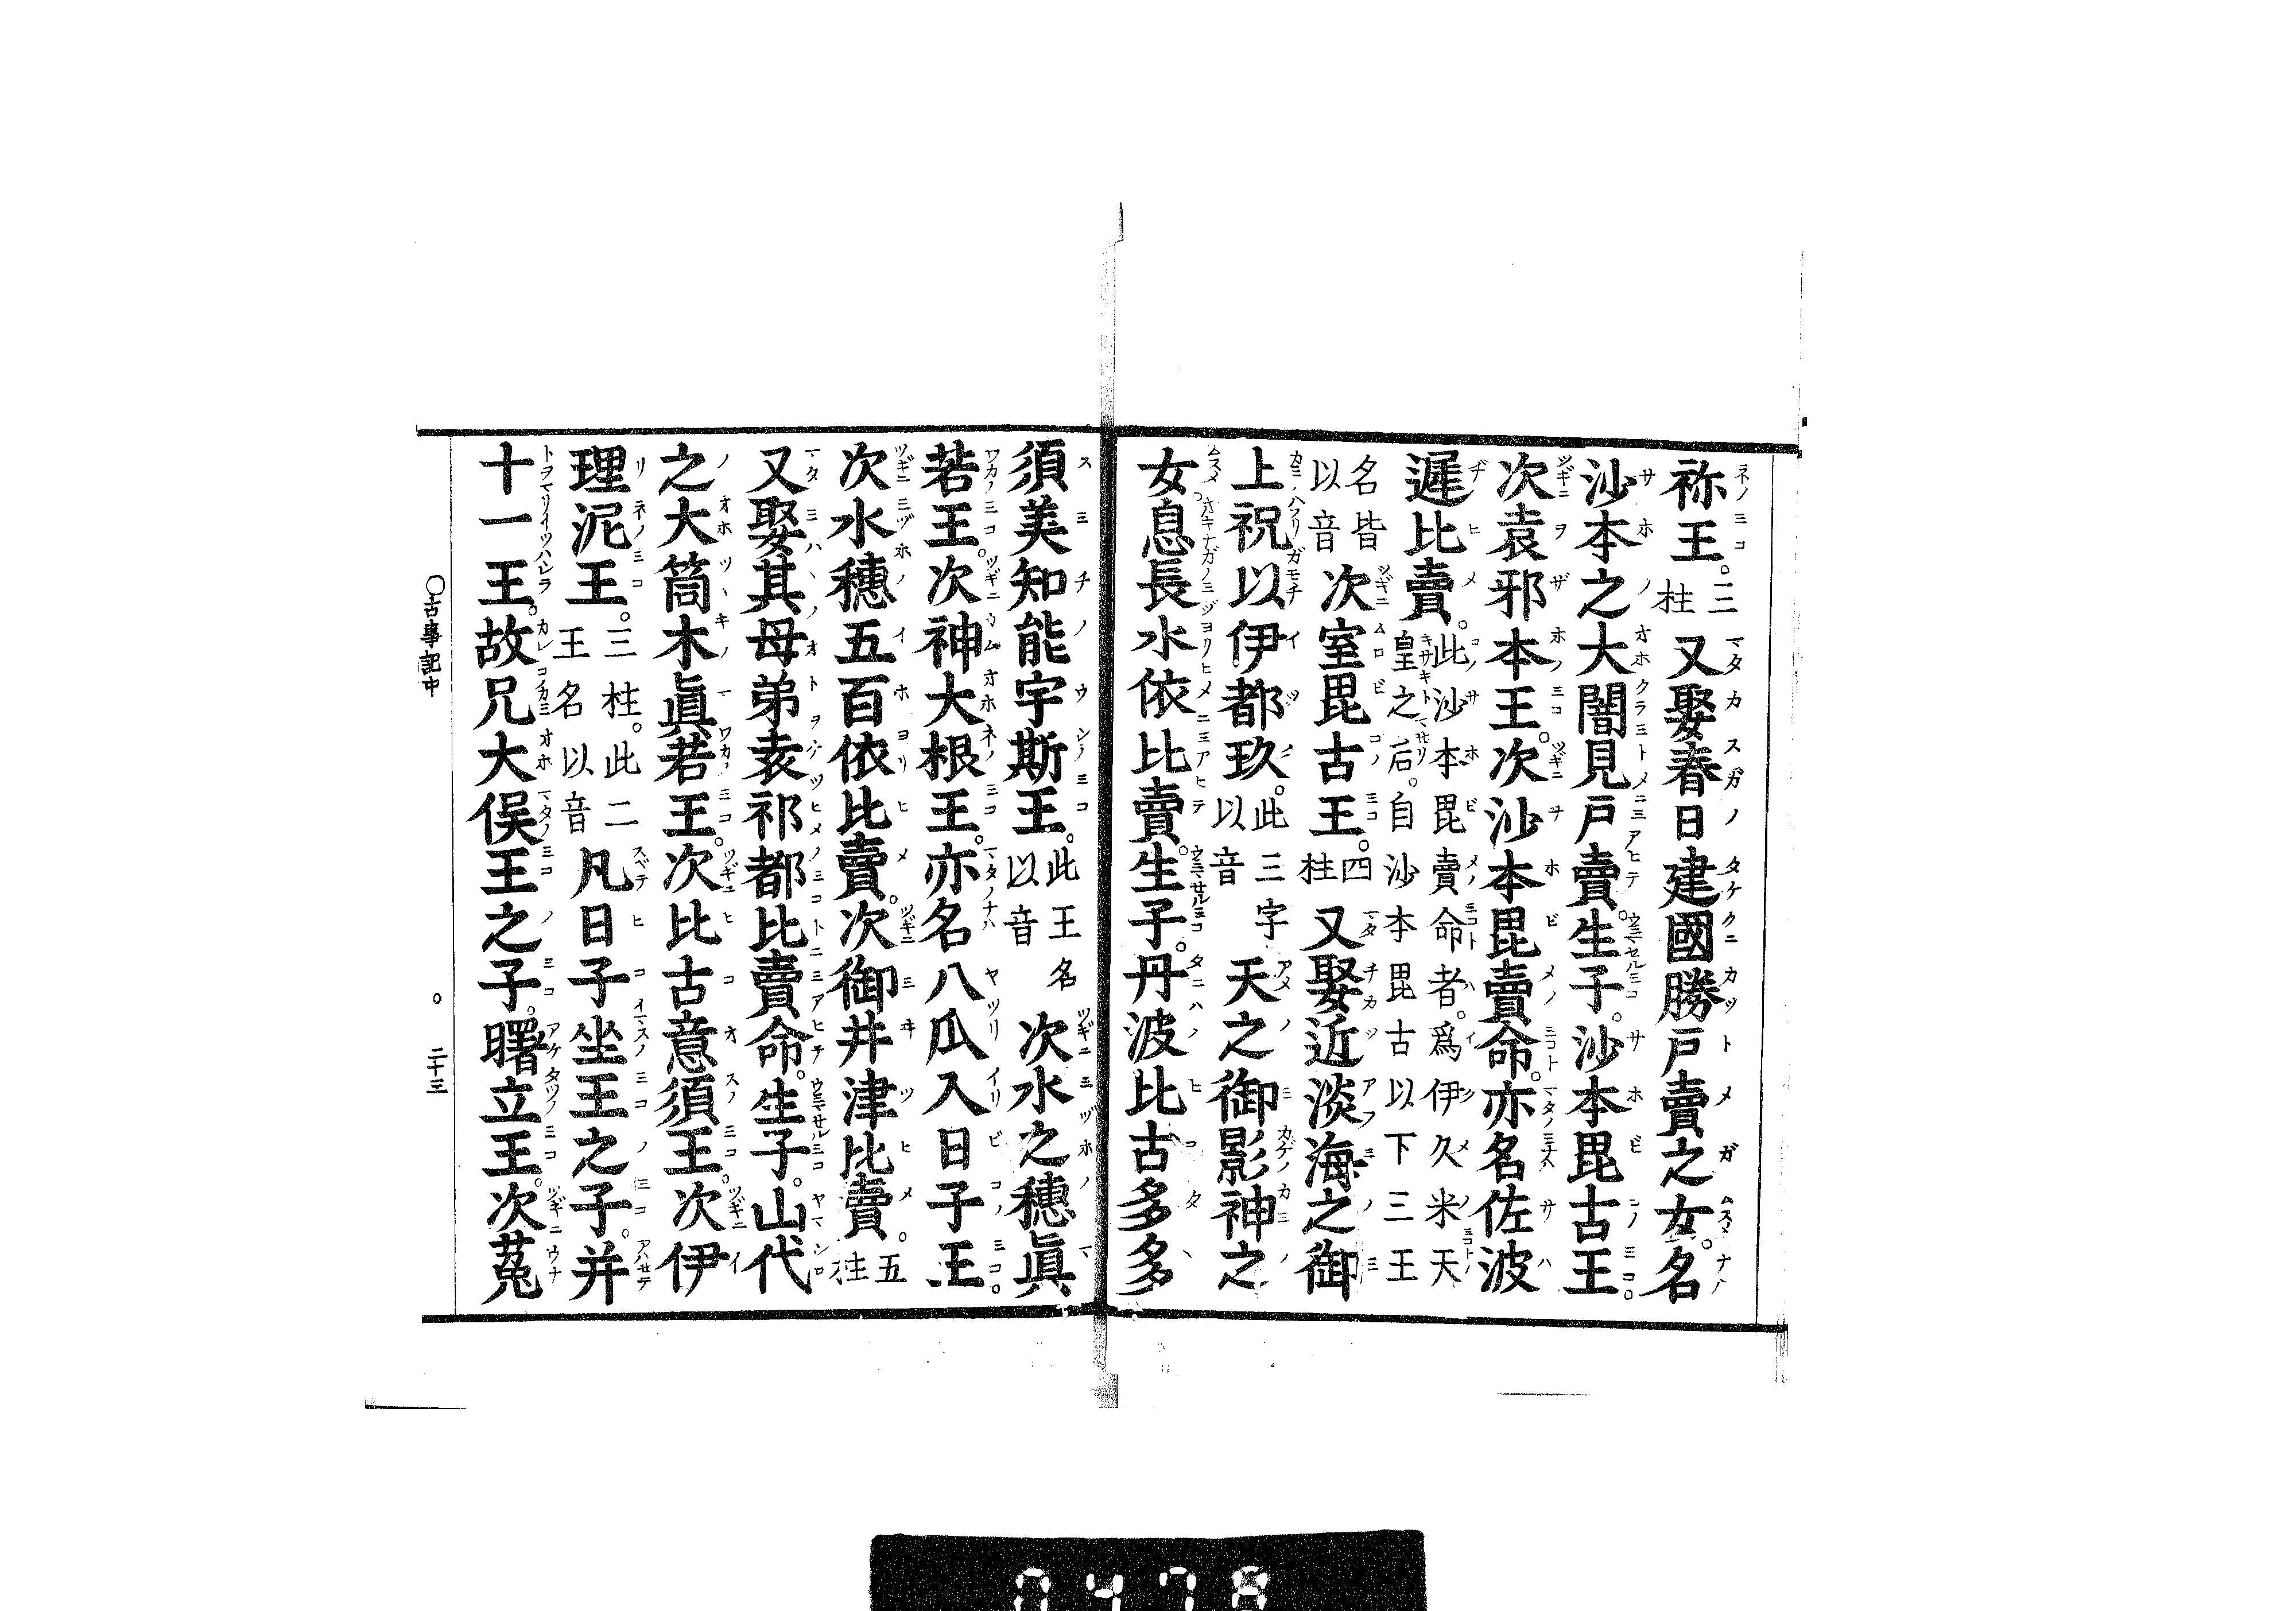 祢王。三柱又娶春日建國勝戸賣之女。名
沙本之大闇見戸賣。生子。沙本毘古王。
次袁邪本王。次沙本毘賣命。亦名佐波
遲比賣。此沙本毘賣命者。爲伊久米天皇之后。自沙本毘古以下三王
名皆以音次室毘古王。四柱又娶近淡海之御
上祝以伊都玖。此三字以音天之御影神之
女。息長水依比賣。生子。丹波比古多多
須美知能宇斯王。此王名以音次水之穗眞
若王。次神大根王。亦名八瓜入日子王。
次水穗五百依比賣。次御井津比賣。五柱
又娶其母弟袁祁都比賣命。生子。山代
之大筒木眞若王。次比古意須王。次伊
理泥王。三柱。此二王名以音凡日子坐王之子。并
十一王。故兄大俣王之子。曙立王。次菟
〇古事記中 二十三
0478